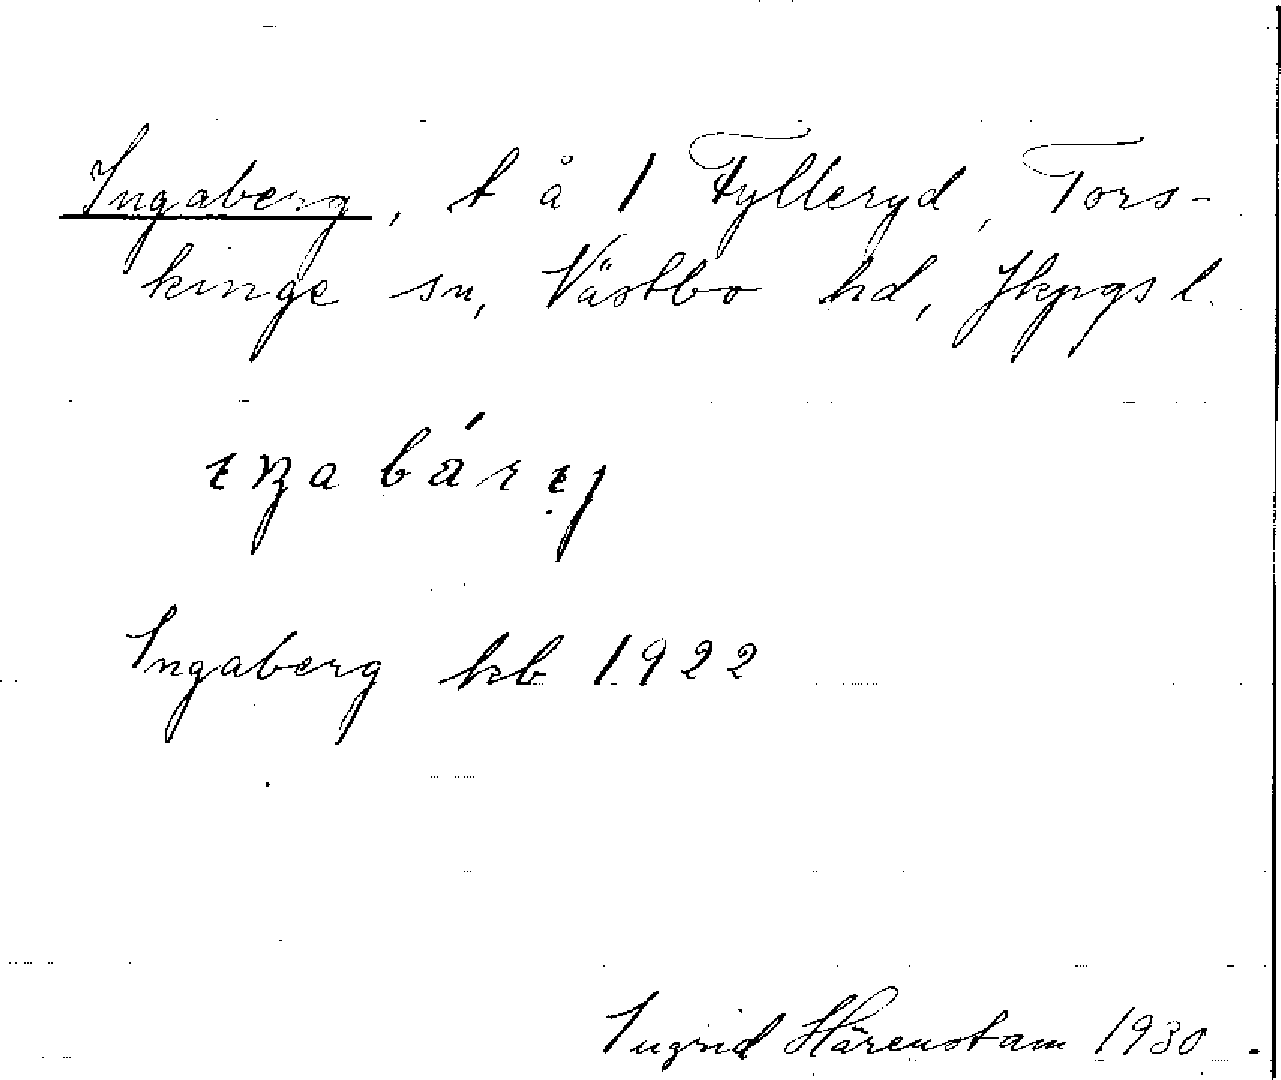 Ingaberg, t å 1 Fylleryd, Tors-
kinge sn, Västbo hd, Jkpgs l.
Ingaberg kb 1922
Ingrid Härenstam 1930